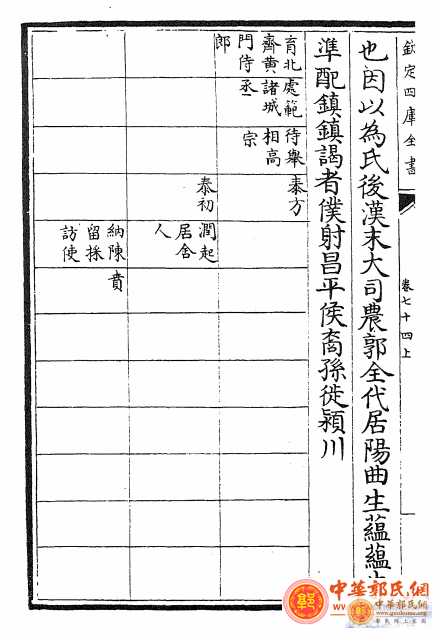 欽定四庫全書
卷七十四上
也因以為氏後漢末大司農郭全代居陽曲生蘊蘊
準配鎮鎮謁者僕射昌平侯裔孫徙潁川
育北
齊黃
門侍
郎
處範
諸城
丞
待舉
相高
宗
泰方
泰初
潤起
居舍
人
納陳
留採
訪使
賁
中華郭氏網